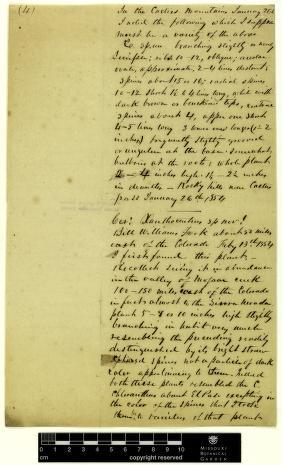 (4)
In the Cactus Mountains January 26th
I noted the following which I suppose
must be a variety of the above
branching slightly
10-12, oblique;
ovate, approximate, 2-4 lines distant
spines about 15 or 16; radial spines
10-12 short 4 lines long, white with
dark brown or tips,
spines about 4, upper one stout
4-5 lines long 3 lower ones longer 2
inches frequently slightly curved
or angular at the base somewhat
bulbous at the root; whole plant
inches high 1½ - 2½ inches
in diameter - Rocky hills near Cactus
pass January 26th 1854
Xanthocentrus
Bill Williams Fork about 22 miles
east of the Colorado Feby 13th 1854
I first found this plant -
Recollect seeing it in abundance
in the valley of Mojave creek
100-150 miles west of the Colorado
in fact almost to the Sierra Nevada
plant 5-8 or 10 inches high slightly
branching in habit very much
resembling the preceding readily
distinguished by its bright straw
colored spines not a particle of dark
color appertaining to them. Indeed
both these plants resembled the C.
about El Paso excepting in
the color of the spines that I took
them to varieties of that plant
cm
MISSOURI
BOTANICAL
GARDEN